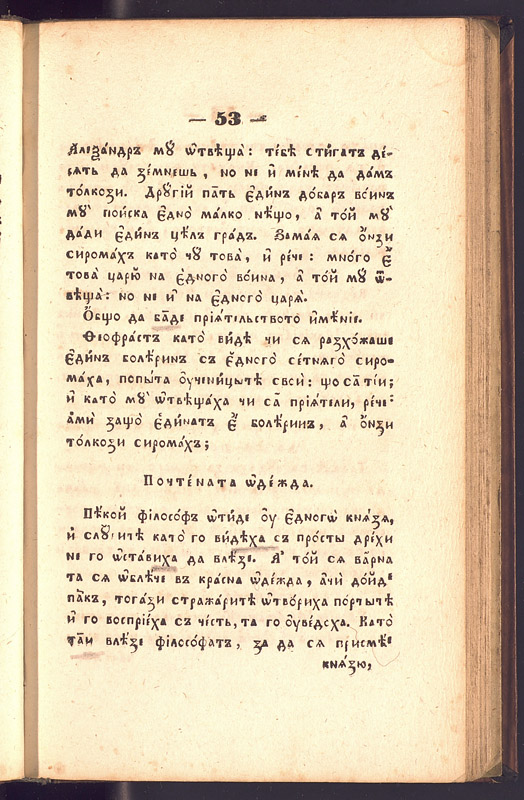 — 53 —
Алеѯа́ндръ мꙋ̀ ѿвѣща̀: те́бѣ сти́гатъ де́-
сять да зе́мнешь, но не и҆ ме́нѣ да да́мъ
то́лкози. Дрꙋ́гїй па́тъ є҆ди́нъ до́баръ во́инъ
мꙋ̀ пои́ска є҆дно̀ ма́лко нѣ́що, а҆ то́й мꙋ̀
да́ди є҆ди́нъ цѣ́лъ гра́дъ. Зама́я ся ѻ҆́нзи
сирома́хъ като̀ чꙋ̀ това̀, и҆ ре́че: мно́го є҆̀
това̀ царю̀ на є҆дного̀ во́ина, а҆ то́й мꙋ̀ ѿ-
вѣща̀: но не и҆ на є҆дного̀ царя̀.
Ѻ҆́бщо да бѫ́де прїя́телството и҆мѣ́нїе.
Ѳеофра́стъ като̀ ви́дѣ чи ся разхо́жаше
є҆ди́нъ болѣ́ринъ съ є҆дного̀ се́тняго сиро-
ма́ха, попы́та ᲂу҆чени́цытѣ свои̑: що сѫ̀ ті́и;
и҆ като̀ мꙋ̀ ѿвѣща́ха чи сѫ̀ прїя́тели, речѐ:
а҆мѝ защо̀ є҆ди́натъ є҆̀ болѣ́ринъ, а҆ ѻ҆́нзи
то́лкози сирома́хъ;
Почте́ната ѡ҆де́жда.
Нѣ́кой філосо́фъ ѿи́де ᲂу҆ є҆дногѡ̀ кня́зя,
и҆ слꙋ́гитѣ като̀ го ви́дѣха съ про́сты дре́хи
не го ѡ҆ста́виха да влѣ́зе. А҆ то́й ся ва́рна
та ся ѡ҆блѣ́че въ кра́сна ѡ҆де́жда, а҆чѝ до́йде
па́къ, тога́зи стража́ритѣ ѿво́риха по́ртытѣ
и҆ го воспрїе́ха съ че́сть, та го ᲂу҆ведо́ха. Като̀
та́и влѣ́зе філосо́фатъ, за да ся присмѣ́е
кня́зю,